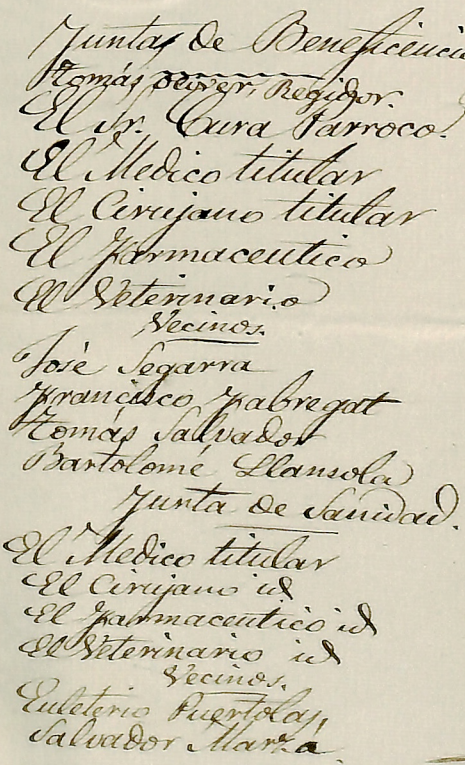 Junta de Beneficencia
Tomás Ferrer, Regidor.
El Sr. Cura Parroco.
El Medico titular
El Cirujano titular
El Farmaceutico
El Veterinario
Vecinos.
José Segarra
Francisco Fabregat
Tomás Salvador
Bartolomé Llansola
Junta de Sanidad.
El Medico titular
El Cirujano id
El Farmaceutico id
El Veterinario id
Vecinos.
Euleterio Puertolas,
Salvador Marzá